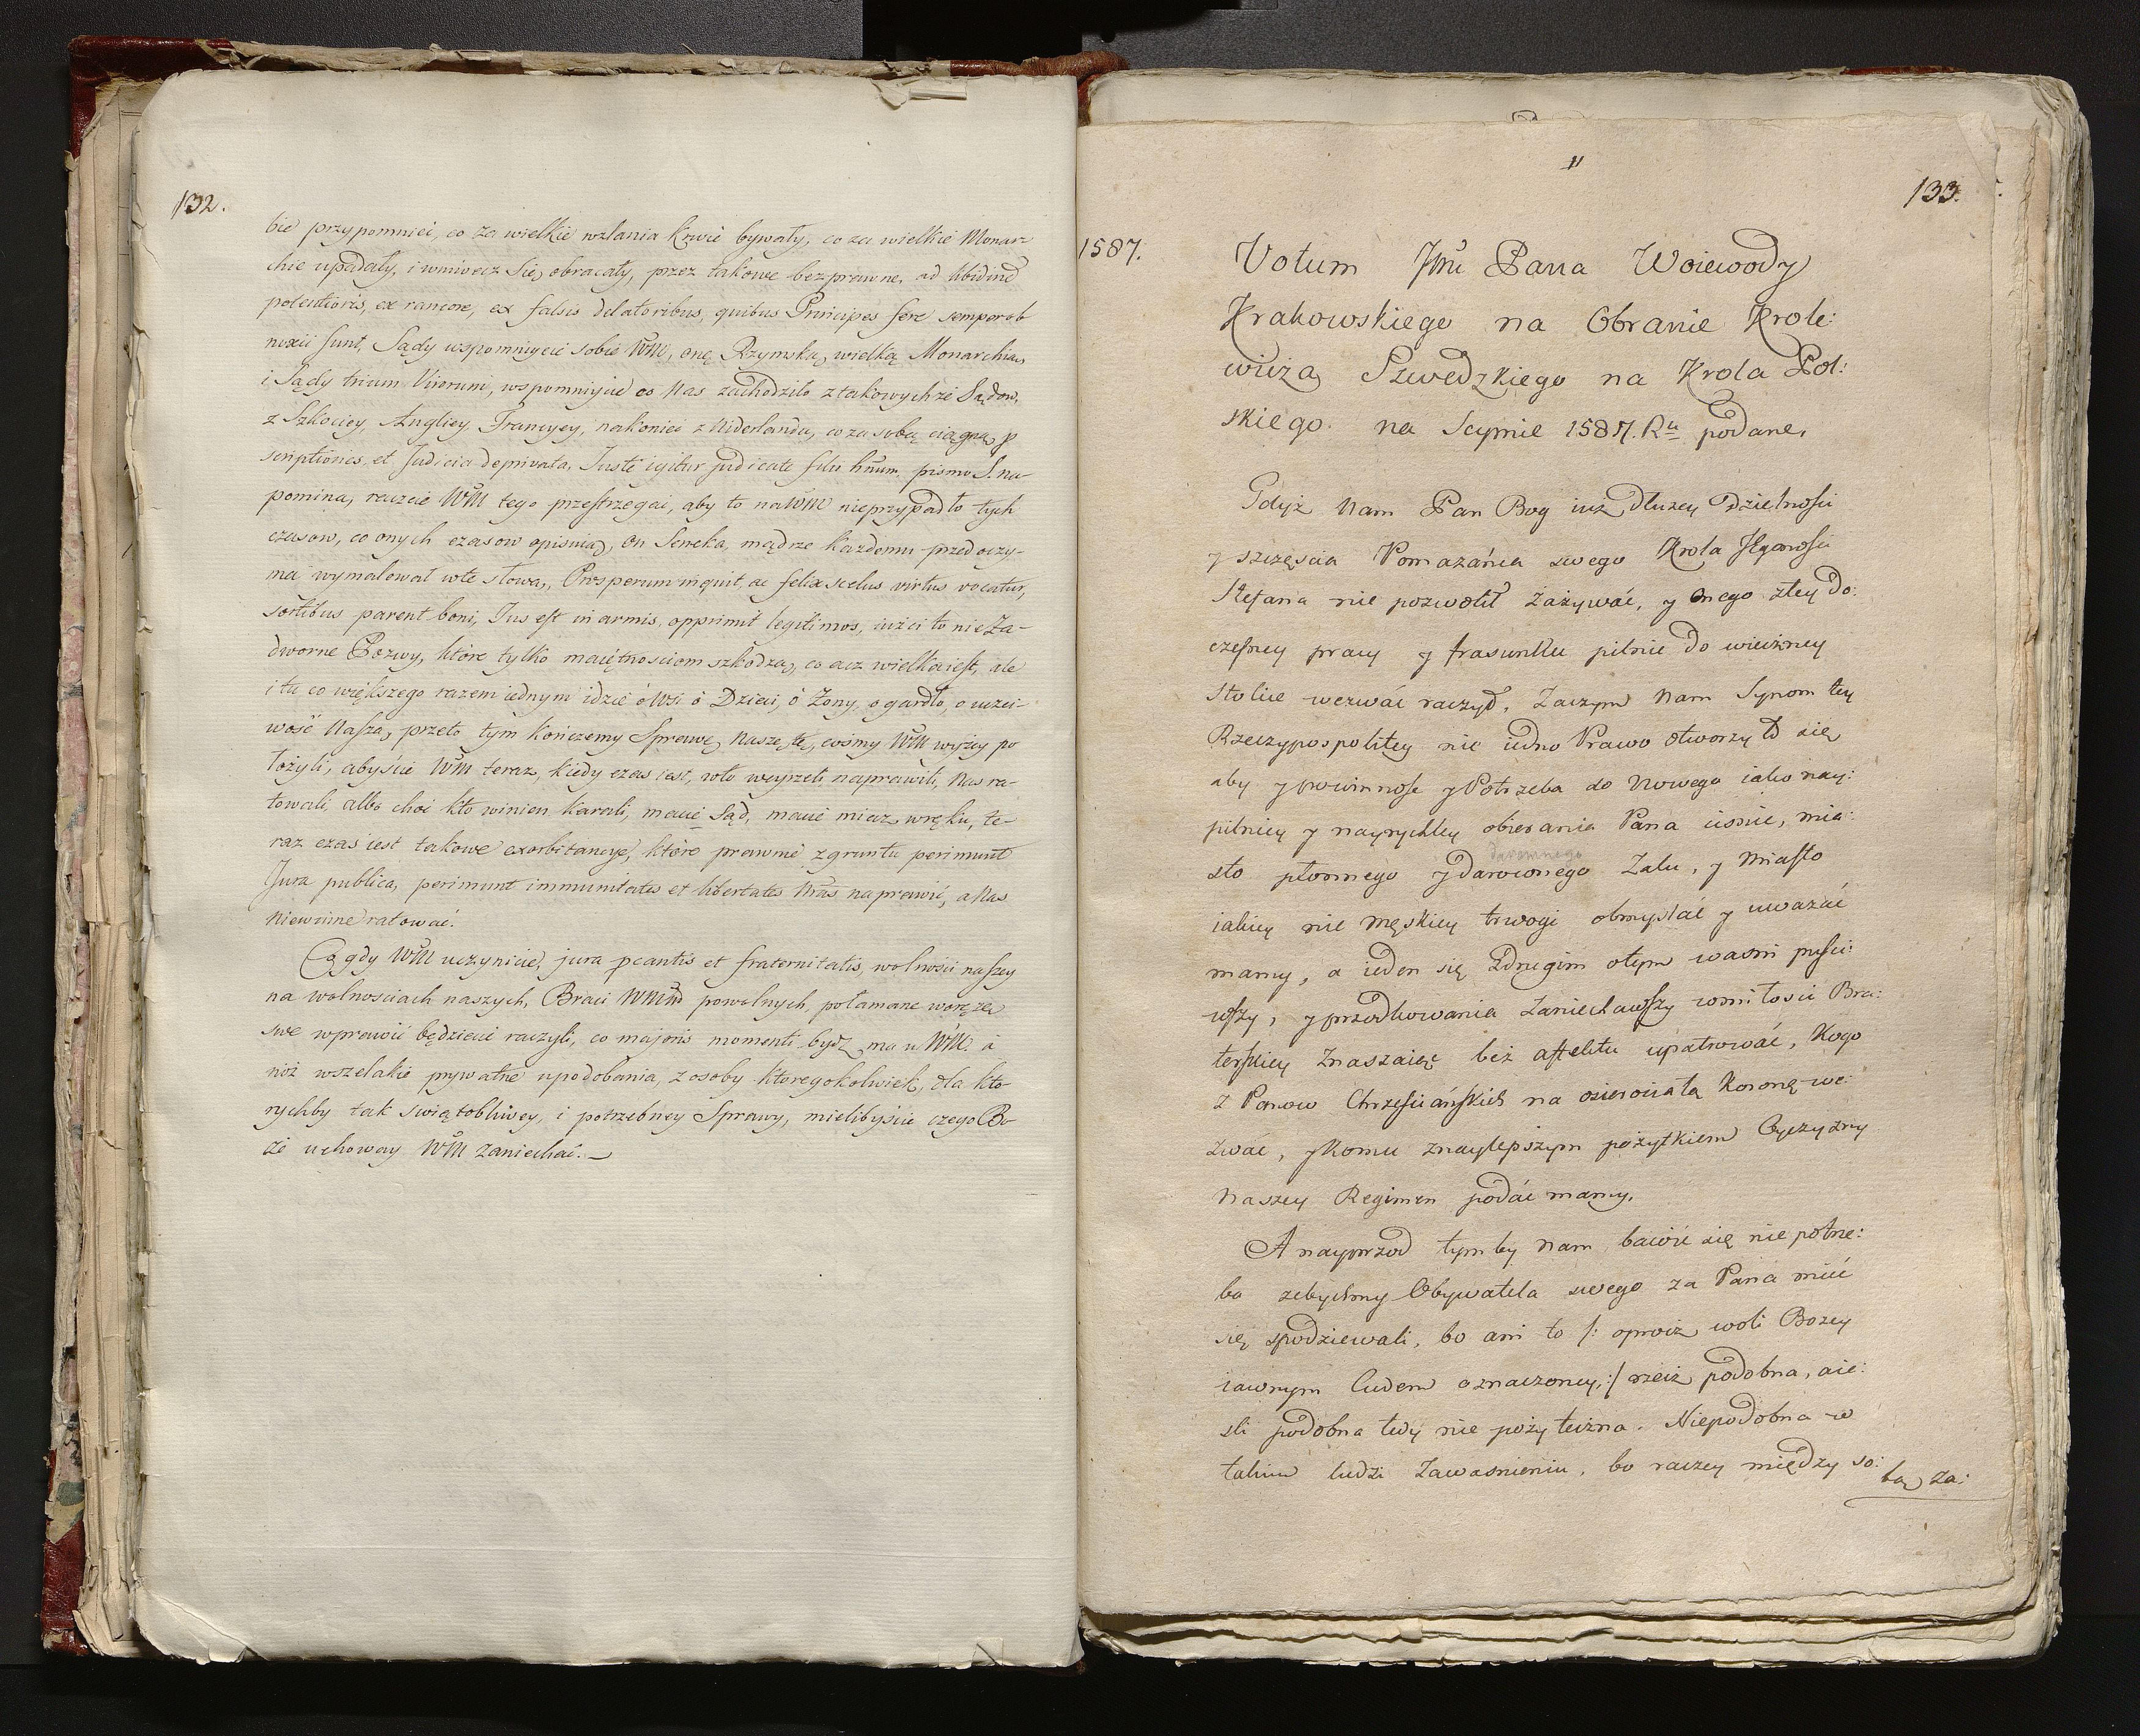 132.
bie przypomniei, co za wielkie wzlania Krwie bywały, co za wielkie Monar-
chie upadały, i wniwecz się obracały, przez takowe bezprawne, ad libidine
potentioris, ex rancore, ex falsis delatoribus, quibus Principes fere semper ob
noxii sunt, Sądy wspomniycie sobie WM, onę Rzymską wielką Monarchią,
i Sądy trium Virorum, wspomniycie co Nas zachodziło z takowychże Sądow,
z Szkociey, Angliey Francyey, nakoniec z Niderlandu, co za sobą ciągną p
scriptiones, et Judicia deprivata. Juste igitur judicate filii hnum. pismo S. na-
pomina, raczcie WM tego przestrzegai, aby to na WM nieprzypadło tych
czasow, co onych czasow opisuiąc, on Seneka, mądrze każdemu przed oczy-
ma wymalował w te słowa, Prosperum inquit, ac felix scelus virtus vocatur,
sontibus parent boni, Jus est in armis, opprimit legitimos, iużci to nie Za-
dworne Pozwy, które tylko maiętnosciom szkodzą, co acz wielka iest, ale
i tu co większego razem iednym idzie ó Wsi ó Dzieci, ó Żony, o gardło, o uczci-
wość Naszą, przeto tym kończemy Sprawę Naszę tę, cośmy WM wyżey po
łożyli, abyście WM teraz, kiedy czas iest, w to weyzreli naprawili, Nas ra-
towali, albo choć kto winien karali, macie Sąd, macie miecz w ręku, te-
raz czas iest takowe exorbitancye, które prawnie z gruntu perimunt
Jura publica, perimunt immunitates et libertates Nras naprawić, a Nas
Niewinne ratować.
Co gdy WM uczynicie, jura pcantis et fraternitatis, wolności naszey
na wolnosciach naszych, Braci WMMd powolnych, połamane w
swe wprawić będziecie raczyli, co majoris momenti bydź ma u WM. a
niż wszelakie prywatne upodobania, z osoby ktoregokolwiek, dla kto-
rychby tak swiątobliwey, i potrzebney Sprawy, mielibyście czego Bo-
że uchoway WM zaniechać. —
11
133.
1587.
Votum Jmci Pana Woiewody
Krakowskiego na Obranie Krole:
wicza Szwedzkiego na Krola Pol:
skiego. na Seymie 1587. Ru podane,
Gdyż Nam Pan Bog iuż dłuzey Dzielności
y szczęscia Pomazańca swego Krola Jegomości
Stefana nie pozwolił zażywać, y onego z tey do:
czesney pracy y frasunku pilnie do wieczney
Stolice wezwać raczył, Zaczym Nam Synom tey
Rzeczypospolitey nie iedno Prawo otworzyło się
aby y powinność y Potrzeba do Nowego iako nay:
pilniey y nayrychley obierania Pana iesnie, mia:
daremnego
sto płonnego y darownego Zalu, y Miasto
iakiey nie Męskiey trwogi obmyslać y uważać
mamy, a ieden się z drugim otym wasni puści:
wszy, y przodkowania zaniechawszy w miłości Bra:
terskiey Znaszaiąc bez affektu upatrować, Kogo
z Panow Chrześciańskich na osierociałą Koronę we:
zwać, y komu z naylepszym pożytkiem Oyczyzny
Naszey Regimen podać mamy.
A nayprzod tym by Nam bawić się nie potrze:
ba zebyśmy Obywatela swego za Pana mieć
się spodziewali, bo ani to /: oprócz woli Bozey
iawnym Cudem oznaczoney, :/ rzecz podobna, aie:
sli podobna tedy nie pożyteczna. Niepodobna w
takim ludzi Zawasnieniu, bo raczey między so:
bą za: